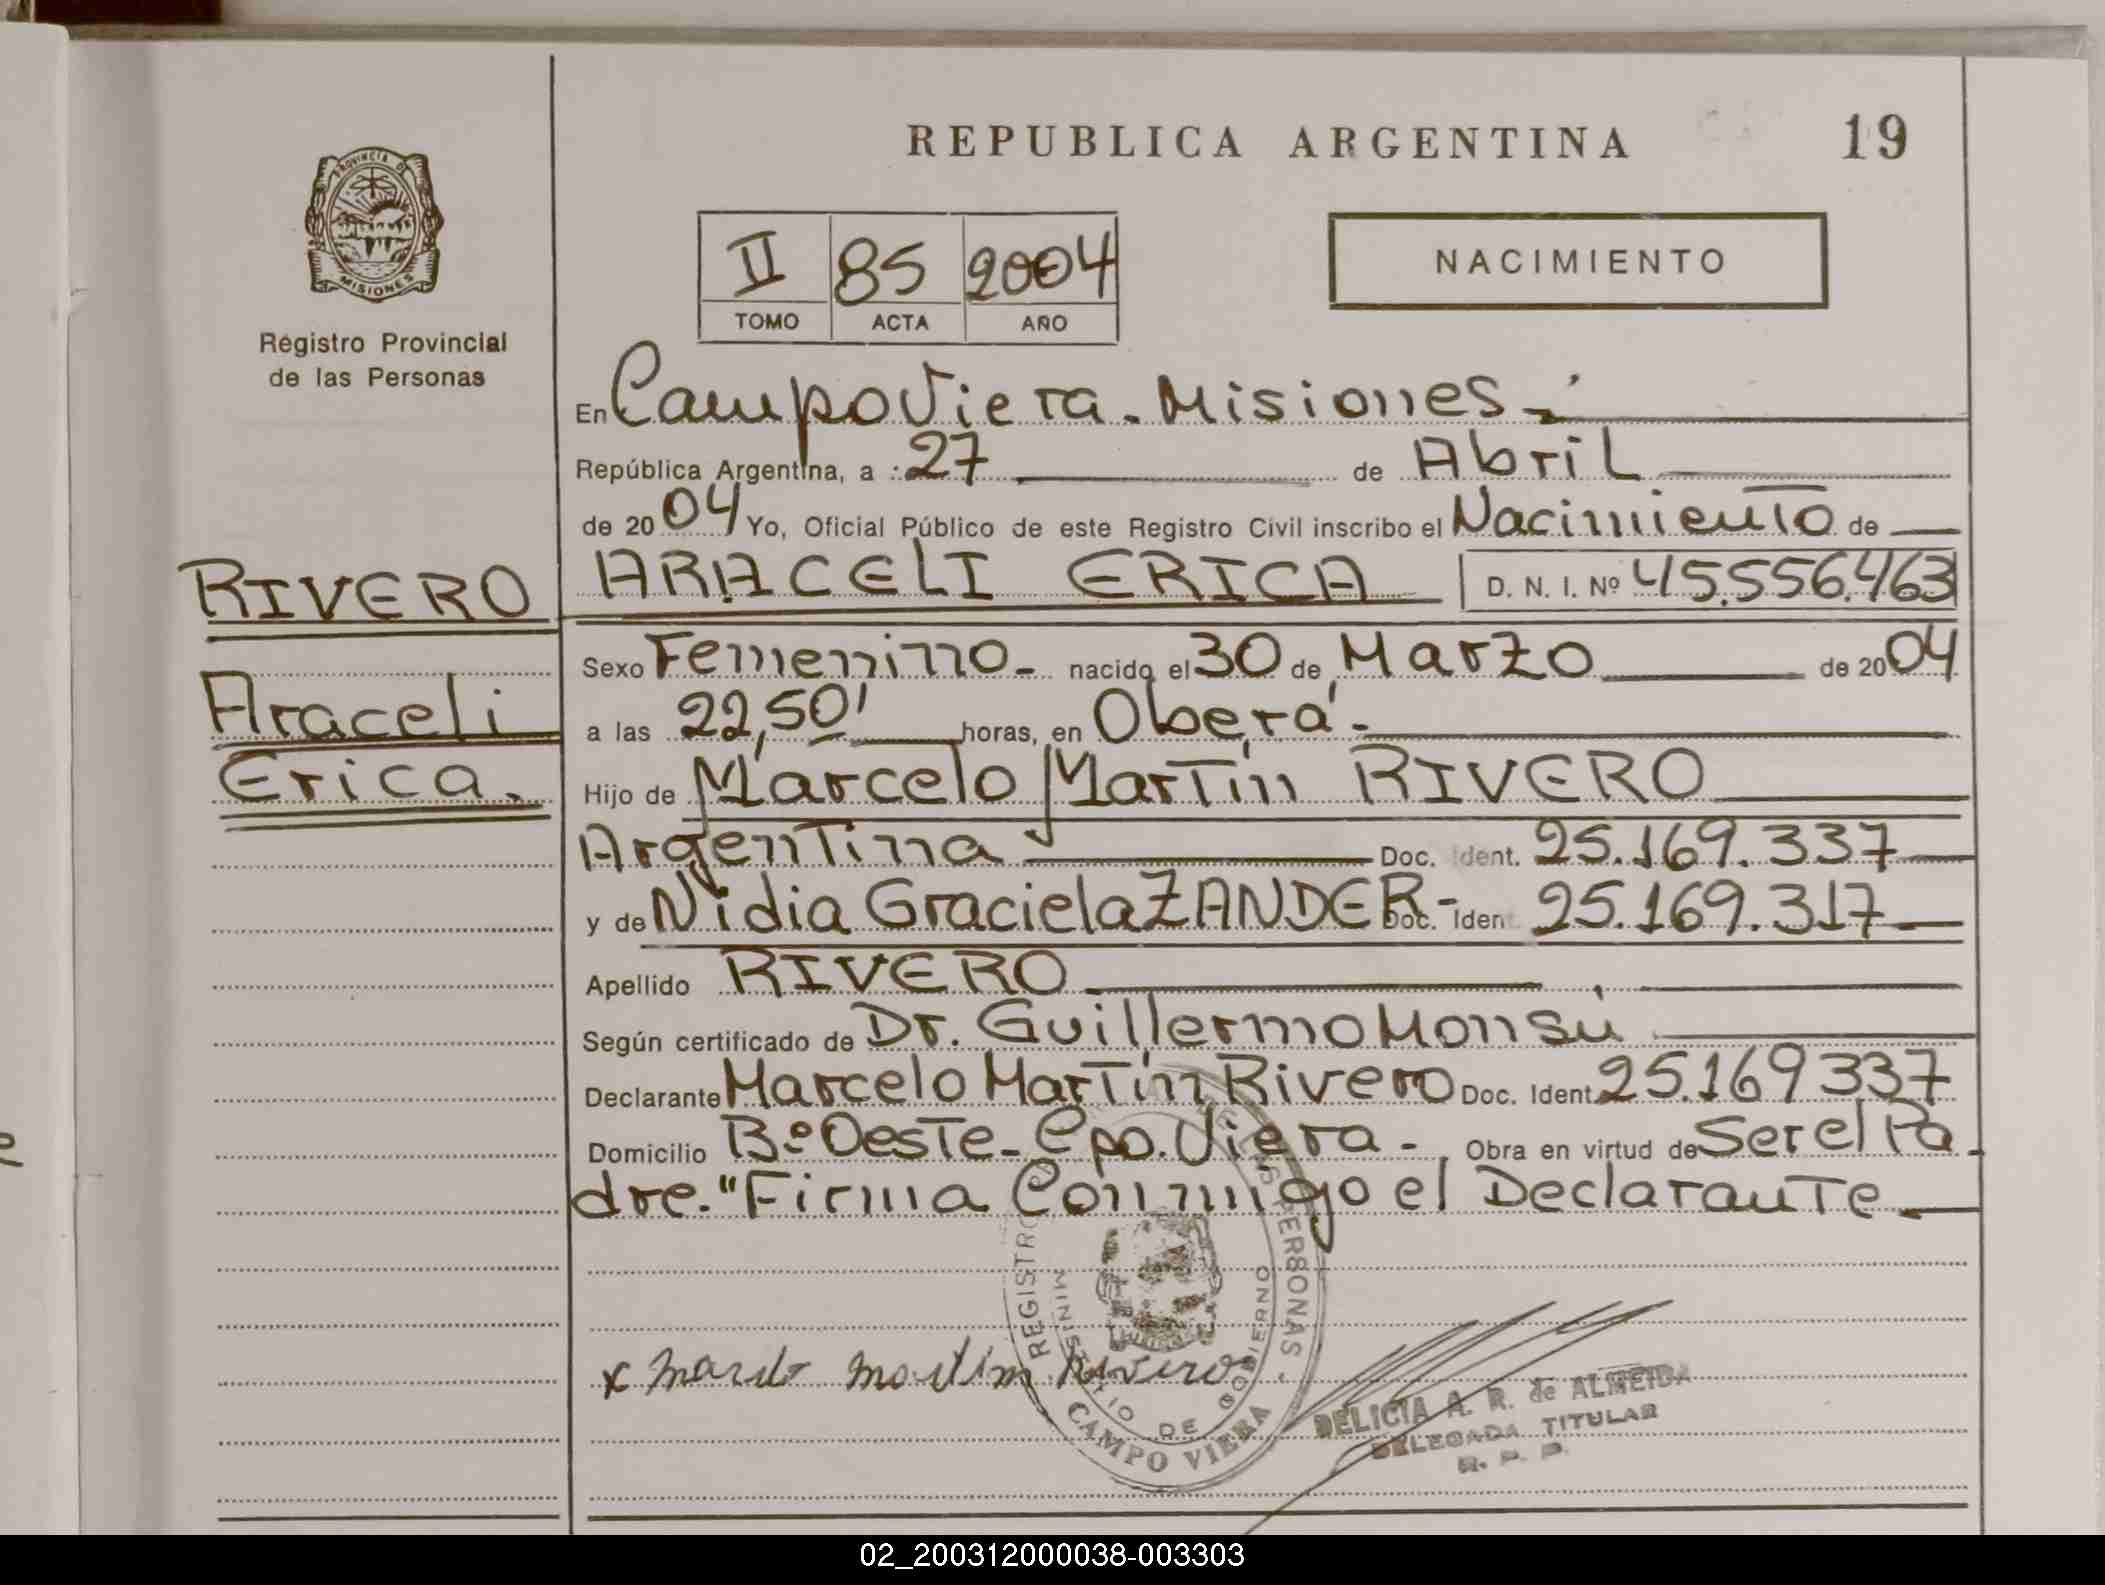 REPUBLICA ARGENTINA
19
PROVINCIA DE
MISIONES
Registro Provincial
de las Personas
II 85 2004
TOMO ACTA AÑO
NACIMIENTO
En Campo Viera - Misiones -
República Argentina, a 27 de Abril
de 2004 Yo, Oficial Público de este Registro Civil inscribo el Nacimiento de
RIVERO
Araceli
Erica.
ARACELI ERICA D. N. I. Nº 45.556.463
Sexo Femenino - nacido el 30 de Marzo de 2004
a las 22,50' horas, en Oberá -
Hijo de Marcelo Martín RIVERO
Argentina Doc. Ident. 25.169.337
y de Nidia Graciela ZANDER - Doc. Ident. 25.169.317
Apellido RIVERO
Según certificado de Dr. Guillermo Monsu
Declarante Marcelo Martín Rivero Doc. Ident. 25.169337
Domicilio Bº Oeste - Cpo. Viera - Obra en virtud de Ser el Pa-
dre. "Firma Conmigo el Declarante
REGISTRO PERSONAS
MINISTERIO DE GOBIERNO
CAMPO VIERA
x martin Rivero
DELICIA A. R. de ALMEIDA
DELEGADA TITULAR
R. P. P.
02_200312000038-003303